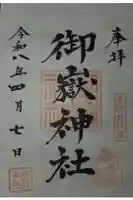 奉拝
御嶽神社
令和八年四月七日